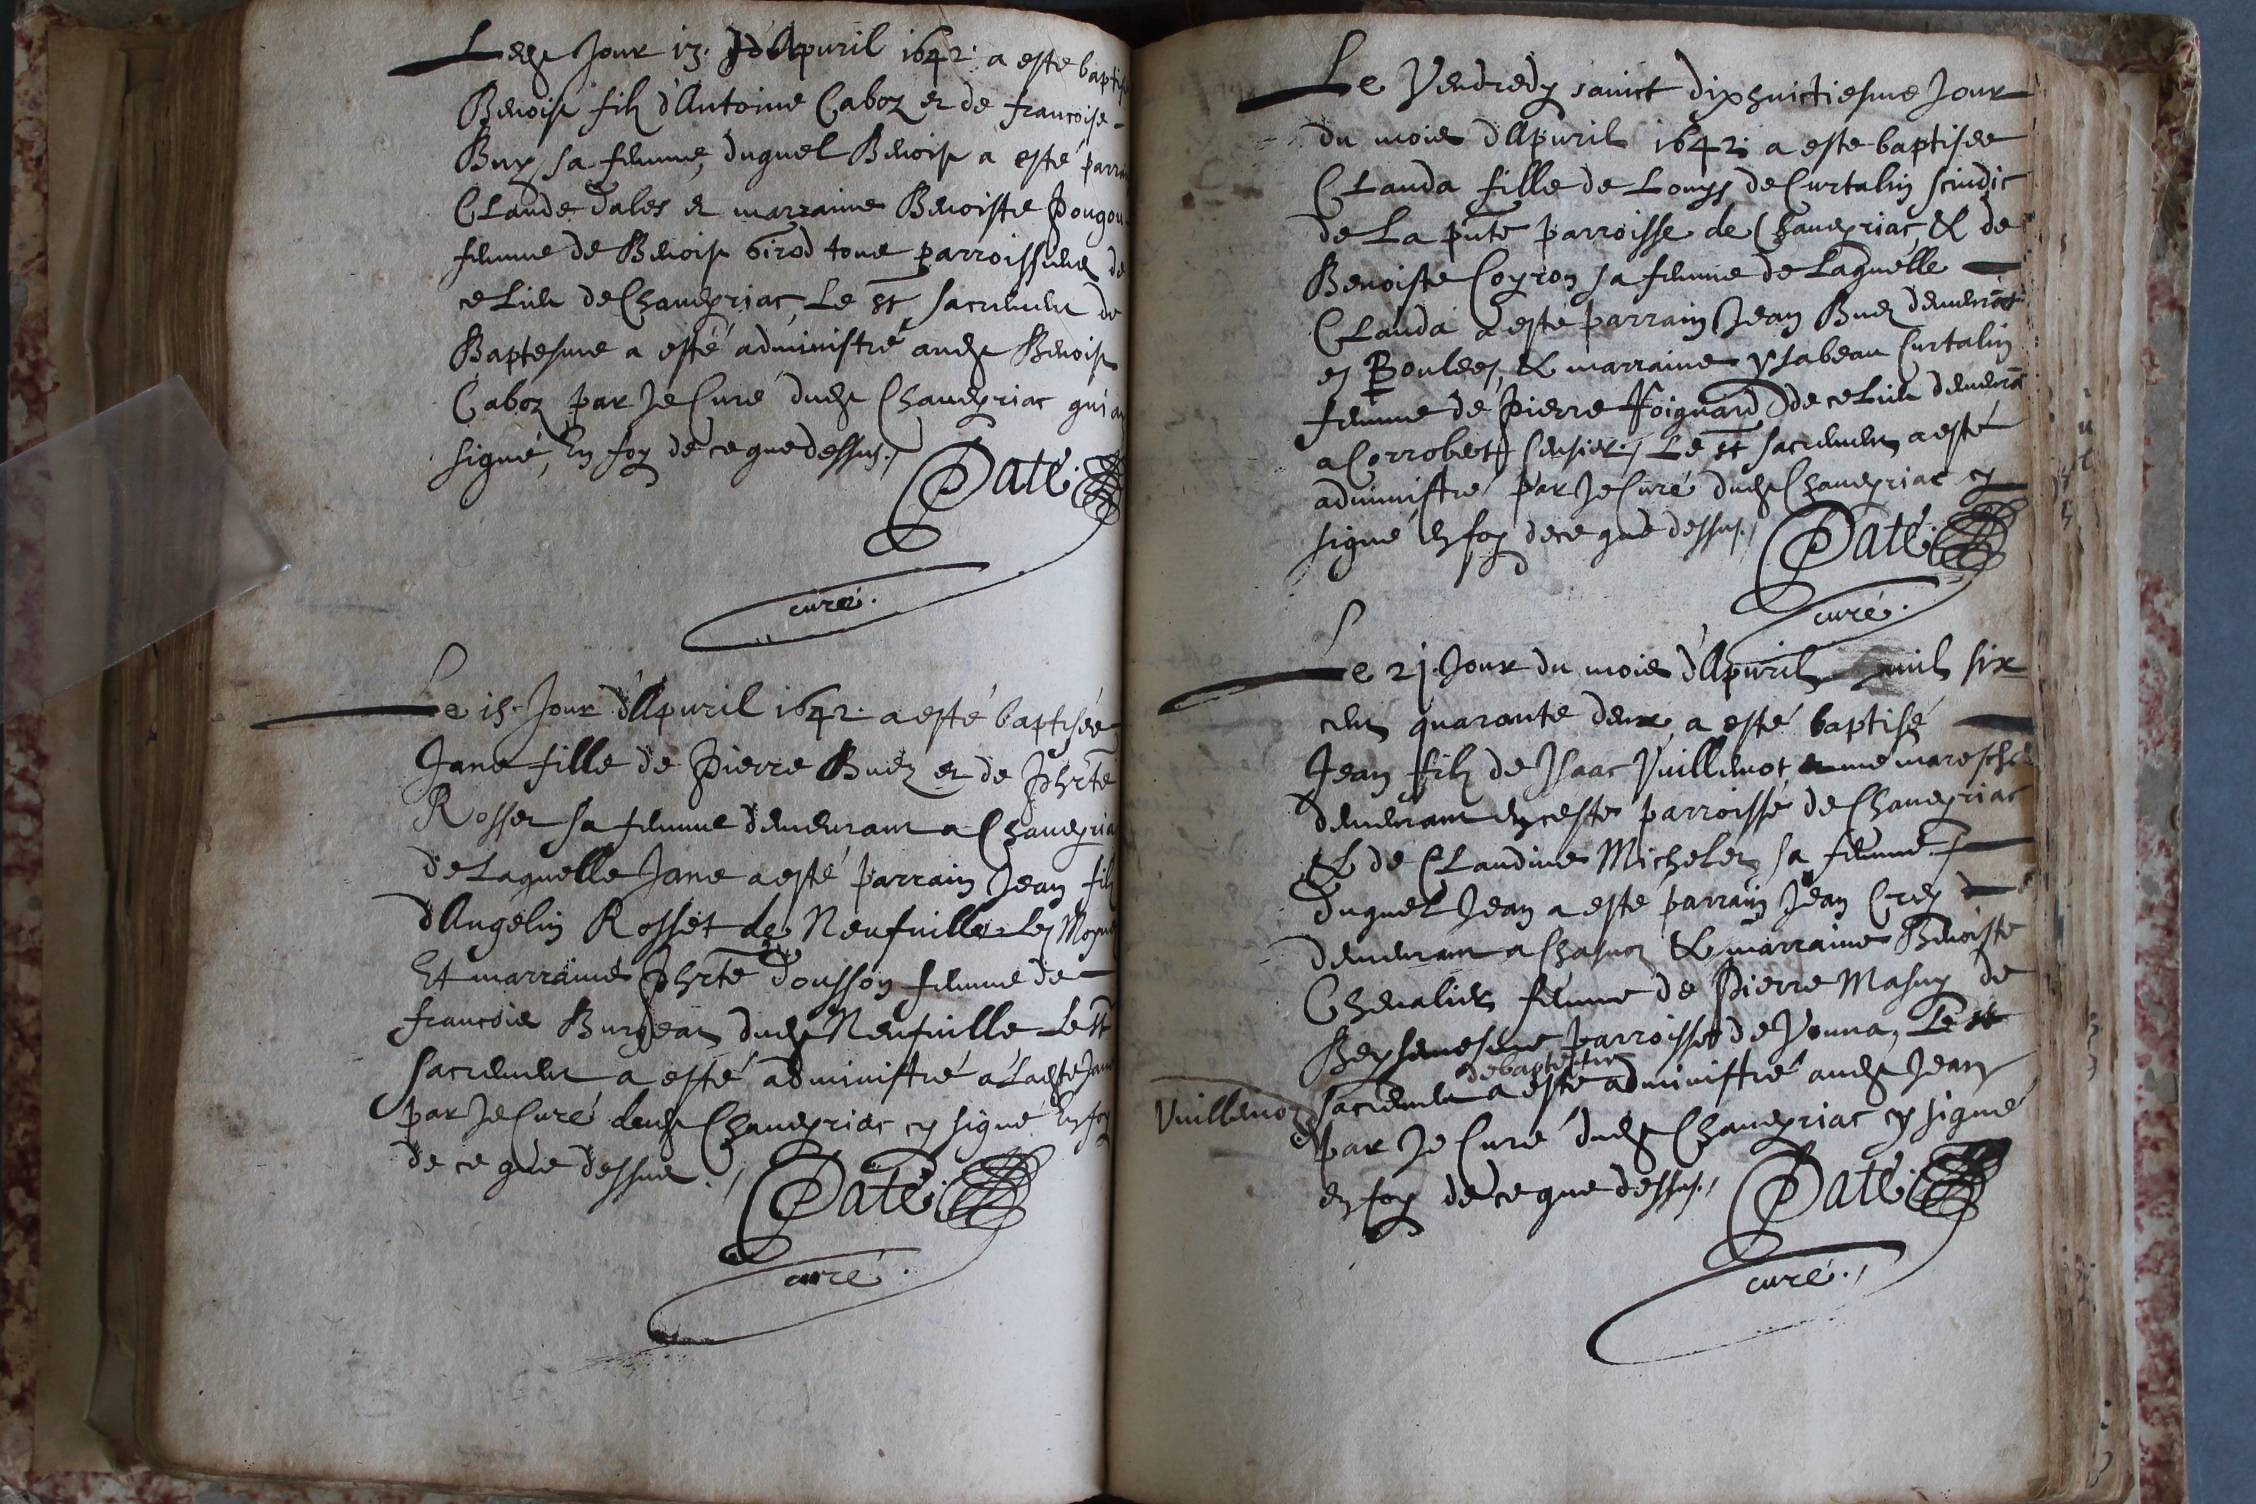 Ledt Jour 13. d'Apuril 1642. a este baptisé
Benoist filz d'Antoine Caboz et de francoise
Buy sa femme, duquel Benoist a esté parrain
Claude Dales et marraine Benoiste Pougon
femme de Benoist Girod tous parroissiens de
ce Lieu de Chaueyriac, Le st, sacrement de
Baptesme a esté administré audt Benoist
Caboz par Je Curé dudt Chaueyriac qui ay
signé, En foy de ce que dessus./
Paté.
curé.
Le 15. Jour d'Apuril 1642. a esté baptisée
Jane fille de Pierre Buez et de Phrte
Rosset sa femme demeurant a Chaueyriac
de Laquelle Jane a esté parrain Jean filz
d'Angelin Rosset de Neufuille Les Moynes
Et marraine Phrte Dousson femme de
francois Burjeat dudt Neufuille Le st
sacrement a esté administré a Ladte Jane
par Je Curé dudt Chaueyriac cy signé En foy
de ce que dessus./
Paté.
curé.
Le Vendredy sainct dixhuictiesme Jour
du mois d'Apuril 1642. a este baptisee
Clauda fille de Louys de Curtalin scindic
de La pnte parroisse de Chaueyriac, & de
Benoiste Coyron sa femme de Laquelle
Clauda a esté parrain Jean Buez demeurat
es Boulees, & marraine ysabeau Curtalin
femme de Pierre Foignard de ce Lieu demeurat
a Corrobert, Le st sacrement a esté
administré par Je Curé dudt Chaueyriac cy
signé en foy de ce que dessus./
Paté.
curé.
Le 21. Jour du mois d'Apuril mil six
cent quarante deux, a esté baptisé
Jean filz de Isaac Vuillemot, me mareschal
demeurant en ceste parroisse de Chaueyriac
& de Claudine Michelet sa femme./
duquel Jean a esté parrain Jean Crey
demeurant a Chasnoz & marraine Benoiste
Cheualier femme de Pierre Masuy de
parroisse de Vonna, Le st
de baptesme
Vuillemoz
sacrement a esté administré audt Jean
par Je Curé dudt Chaueyriac cy signé
en foy de ce que dessus./
Paté.
curé./